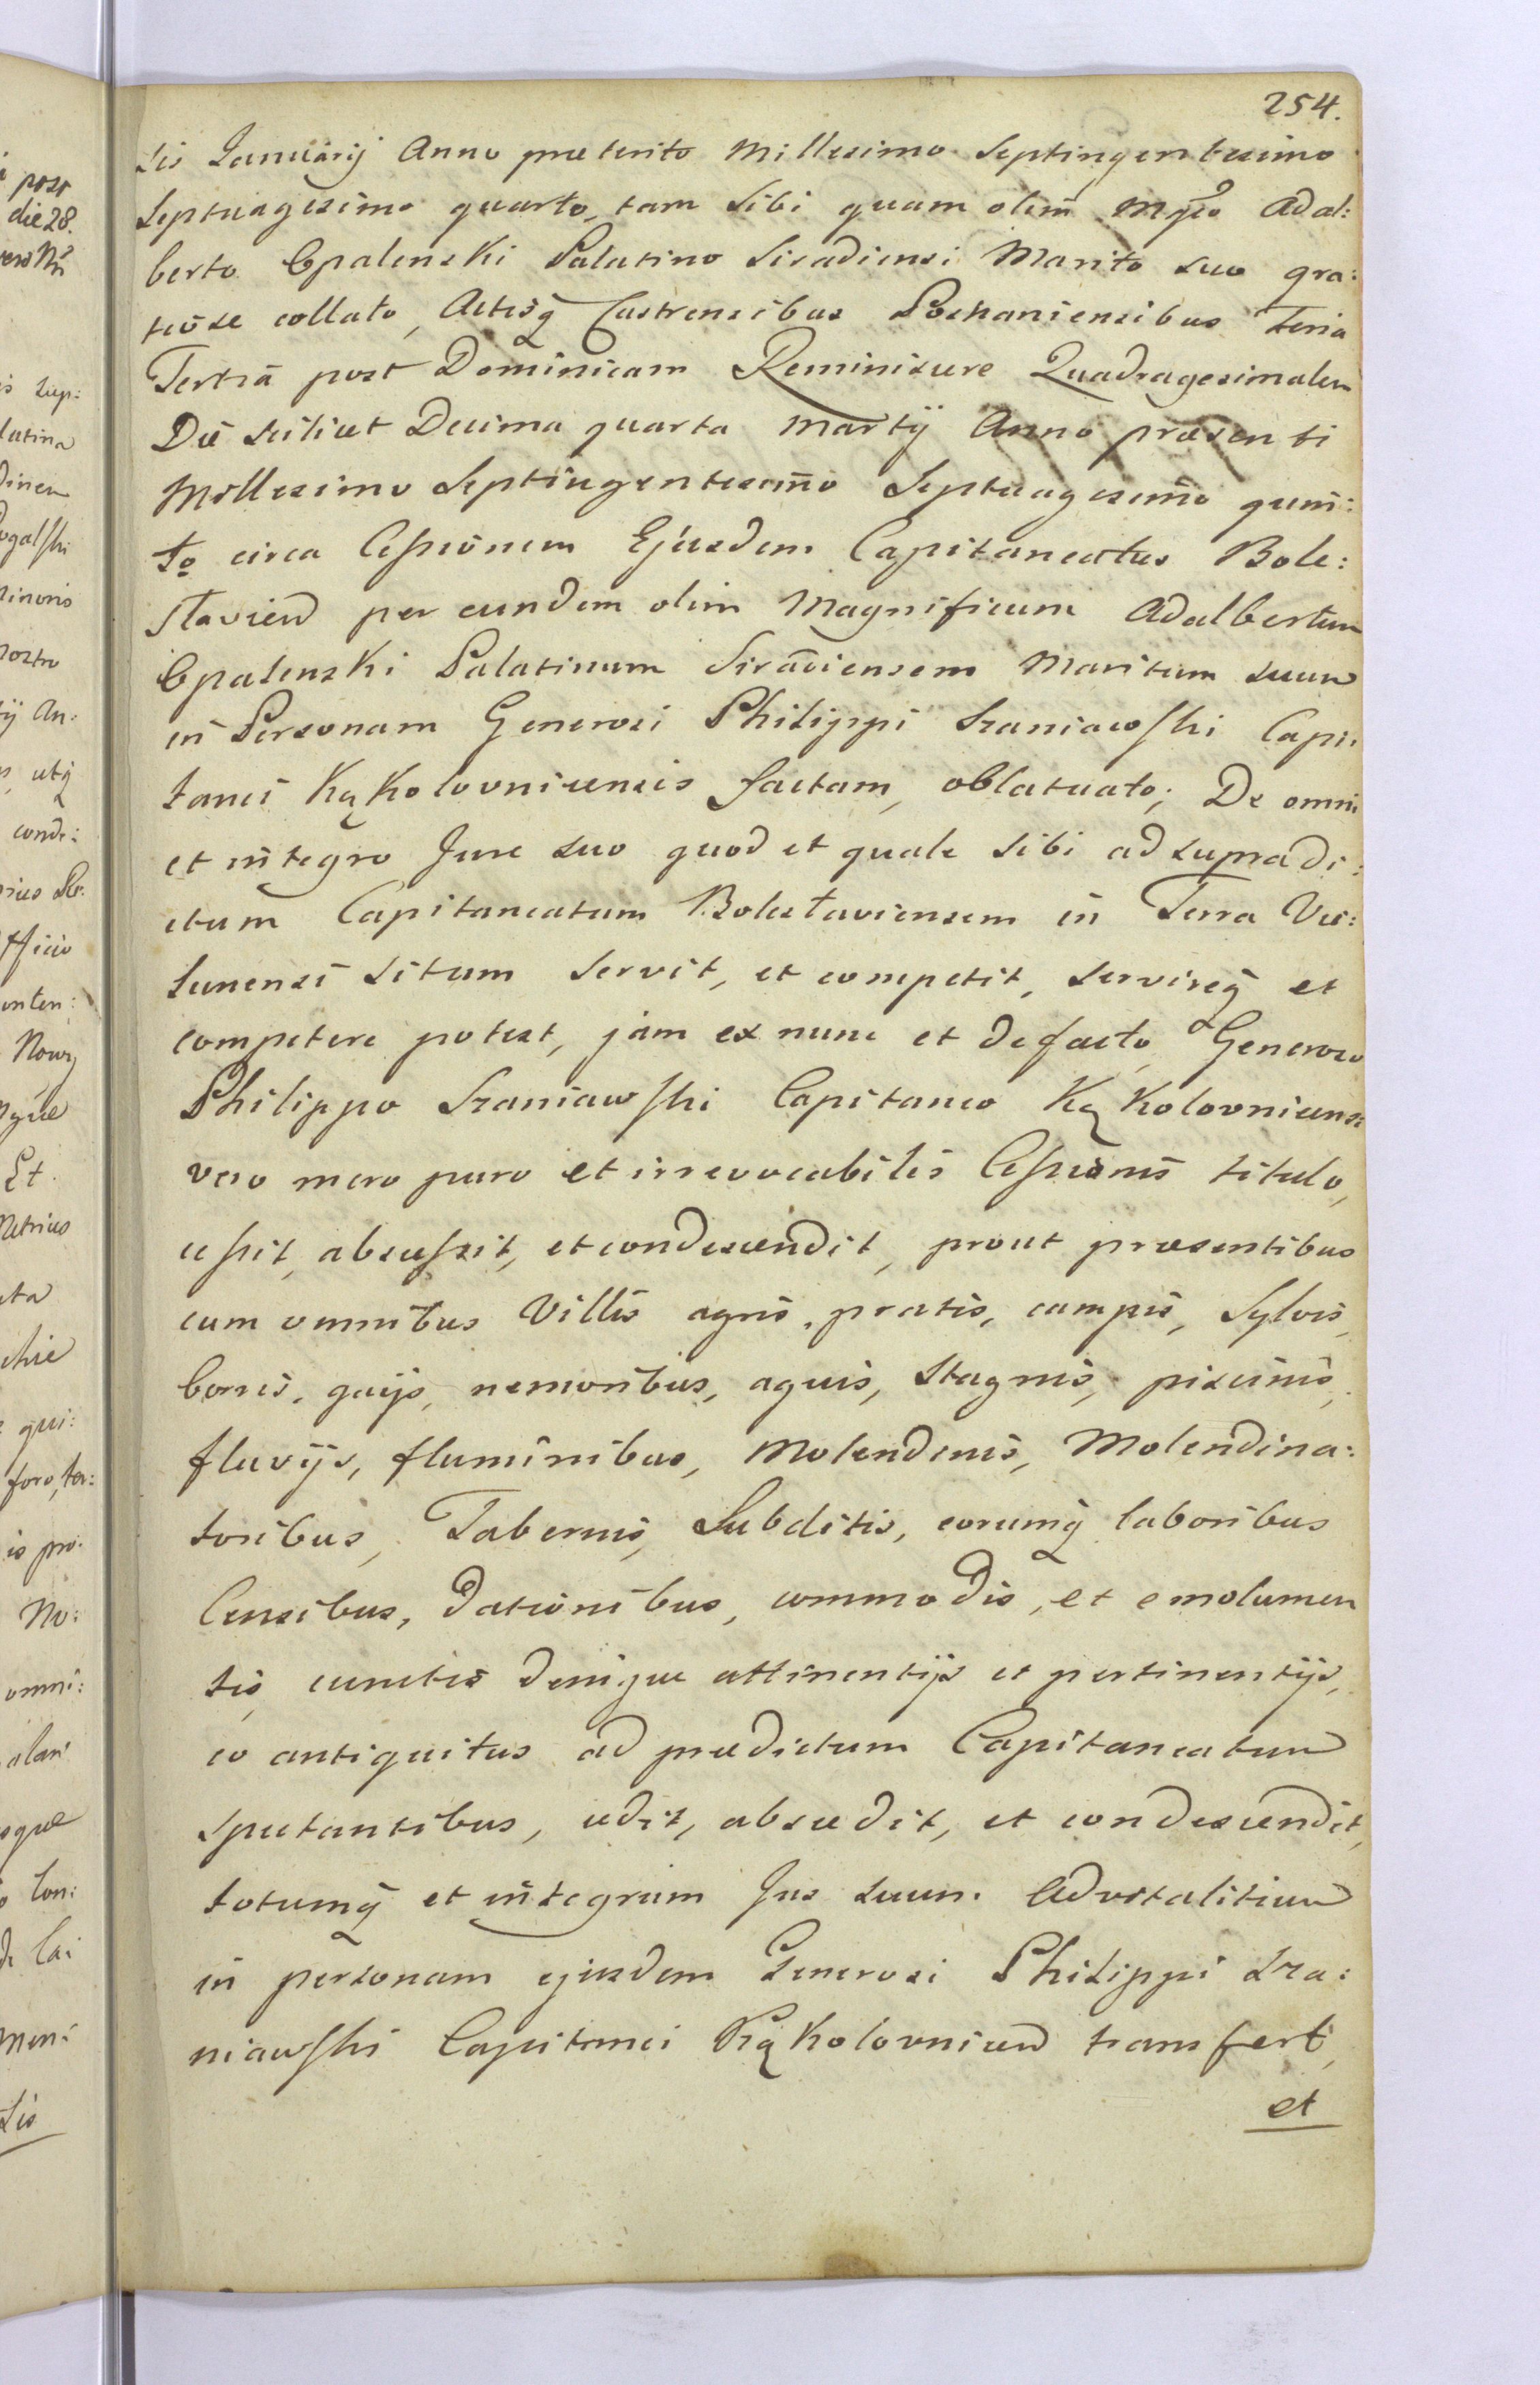 254.
sis Januarij Anno præterito Millesimo Septingentesimo
Septuagesimo quarto, tam sibi quam olim Mgco Adal:
berto Opalenski Palatino Siradiensi Marito suo gra:
tiose collato, Actisq Castrensibus Posnaniensibus Feria
Tertia post Dominicam Reminiscere Quadragesimalem
Die scilicet Decima quarta Martij Anno præsenti
Millesimo Septingentesimo Septuagesimo quin:
to circa Cessionem Ejusdem Capitaneatus Bole:
slavien per eundem olim Magnificum Adalbertum
Opalenski Palatinum Siradiensem Maritum suum
in Personam Generosi Philippi Szaniawski Capi:
tanei Kąkolovnicensis factam, oblatuato; De omni
et integro Jure suo quod et quale sibi ad supradi:
ctum Capitaneatum Boleslaviensem in Terra Vie:
lunensi situm servit, et competit, servireq et
competere potest, jam ex nunc et de facto Generoso
Philippo Szaniawski Capitaneo Kąkolovnicensi
vero mero puro et irrevocabilis Cessionis titulo,
cessit, abscessit, et condescendit, prout præsentibus
cum omnibus Villis agris, pratis, campis, Sylvis,
borris, gaijs, nemoribus, aquis, stagnis, piscinis,
fluvijs, fluminibus, Molendinis, Molendina:
toribus, Tabernis, Subditis, eorumq laboribus
Censibus, dationibus, commodis, et emolumen
tis, cunctis denique attinentijs et pertinentijs,
eo antiquitus ad prædictum Capitaneatum
spectantibus, cedit, abscedit, et condescendit,
totumq et integrum Jus suum Advitalitium
in personam ejusdem Generosi Philippi Sza:
niawski Capitanei Kąkolovnicen transfert,
et
i post
die 28.
latina
ogalski
minoris
ij An:
, utq
conde:
fficio
onten:
Et
qui:
foro, ter:
is pro:
No:
omni: